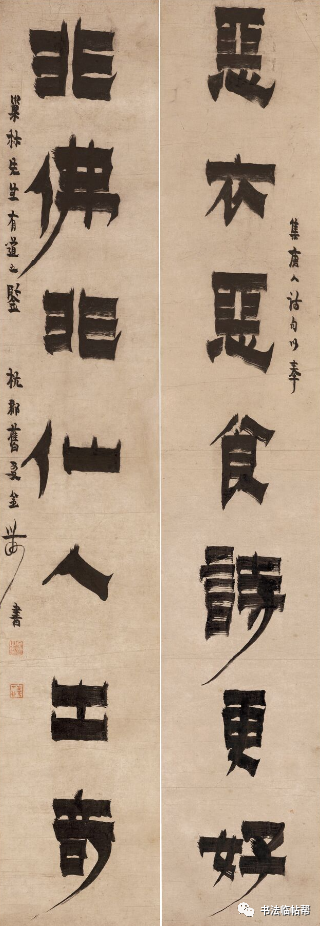 集唐人詩句以奉
惡衣惡食詩更好
非佛非仙人出奇
巢林先生有道之鑒 杭郡舊友金農書
书法临帖帮